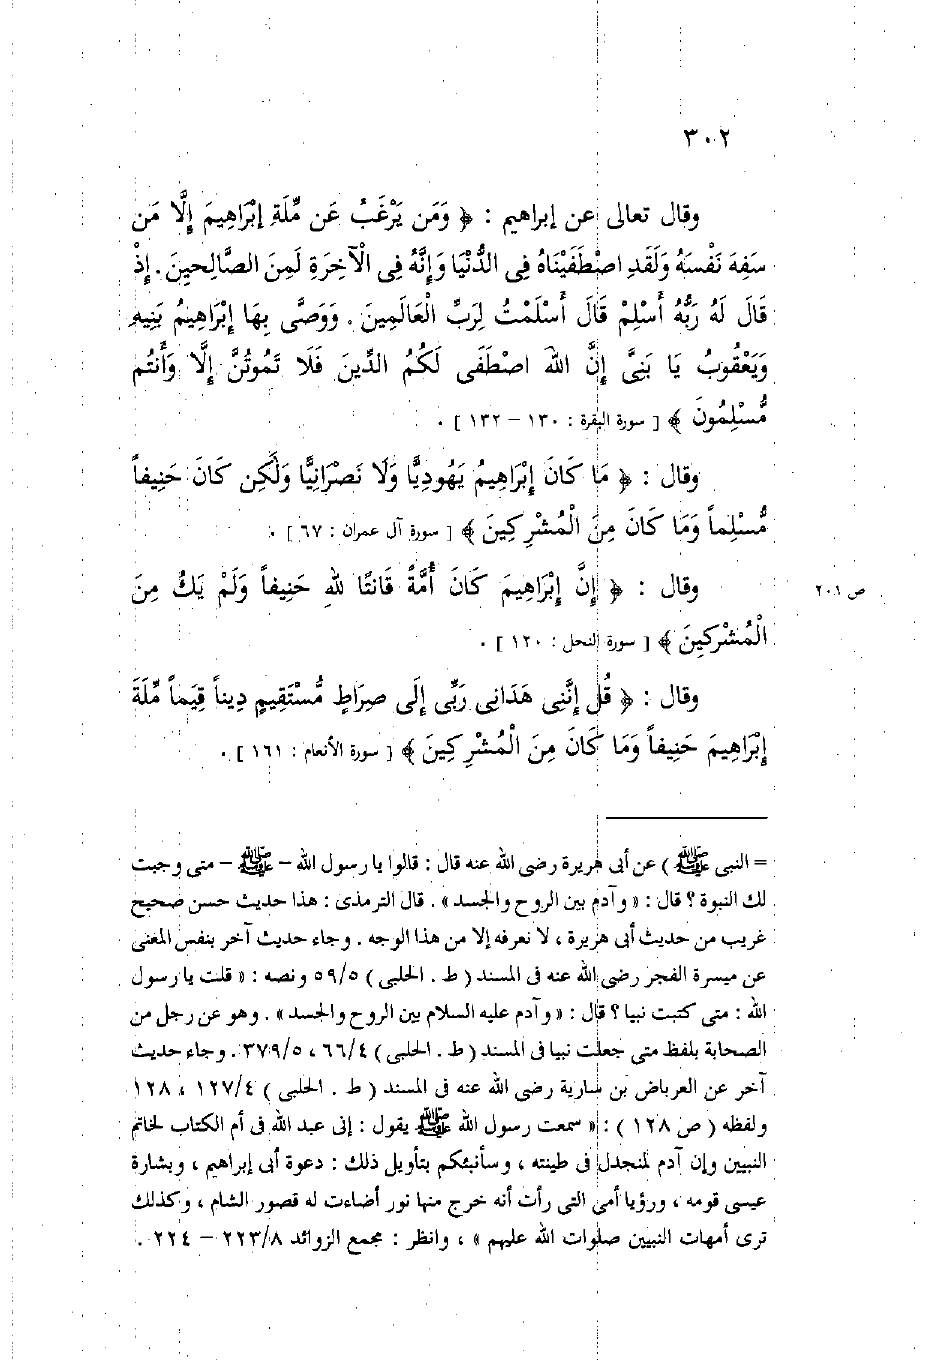 ٣٠٢
وقال تعالى عن إبراهيم : ﴿ وَمَن يَرْغَبُ عَن مِّلَةِ إِبْرَاهِيمَ إِلَّا مَن
سَفِهَ نَفْسَهُ وَلَقَدِ اصْطَفَيْنَاهُ فِى الدُّنْيَا وَإِنَّهُ فِى الْآخِرَةِ لَمِنَ الصَّالِحِينَ . إِذْ
قَالَ لَهُ رَبُّهُ أَسْلِمْ قَالَ أَسْلَمْتُ لِرَبِّ الْعَالَمِينَ . وَوَصَّى بِهَا إِبْرَاهِيمُ بَنِيهِ
وَيَعْقُوبُ يَا بَنِىَّ إِنَّ اللهَ اصْطَفَى لَكُمُ الدِّينَ فَلَا تَمُوتُنَّ إِلَّا وَأَنتُم
مُّسْلِمُونَ ﴾ [ سورة البقرة : ١٣٠ – ١٣٢ ] .
وقال : ﴿ مَا كَانَ إِبْرَاهِيمُ يَهُودِيًّا وَلَا نَصْرَانِيًّا وَلَٰكِن كَانَ حَنِيفاً
مُّسْلِماً وَمَا كَانَ مِنَ الْمُشْرِكِينَ ﴾ [ سورة آل عمران : ٦٧ ] .
وقال : ﴿ إِنَّ إِبْرَاهِيمَ كَانَ أُمَّةً قَانتًا للهِ حَنِيفاً وَلَمْ يَكُ مِنَ
ص ٢٠١
الْمُشْركِينَ ﴾ [ سورة النحل : ١٢٠ ] .
وقال : ﴿ قُل إِنَّنِى هَدَانِى رَبِّى إِلَى صِرَاطٍ مُّسْتَقِيمٍ دِيناً قِيَماً مِّلَةَ
إِبْرَاهِيمَ حَنِيفاً وَمَا كَانَ مِنَ الْمُشْرِكِينَ ﴾ [ سورة الأنعام : ١٦١ ] .
= النبى ﷺ ) عن أبى هريرة رضى الله عنه قال : قالوا يا رسول الله – ﷺ – متى وجبت
لك النبوة ؟ قال : « وآدم بين الروح والجسد » . قال الترمذى : هذا حديث حسن صحيح
غريب من حديث أبى هريرة ، لا نعرفه إلا من هذا الوجه . وجاء حديث آخر بنفس المعنى
عن ميسرة الفجر رضى الله عنه فى المسند ( ط . الحلبى ) ٥٩/٥ ونصه : « قلت يا رسول
الله : متى كتبت نبيا ؟ قال : « وآدم عليه السلام بين الروح والجسد » . وهو عن رجل من
الصحابة بلفظ متى جعلت نبيا فى المسند ( ط . الحلبى ) ٦٦/٤ ، ٣٧٩/٥ . وجاء حديث
آخر عن العرباض بن سارية رضى الله عنه فى المسند ( ط . الحلبى ) ١٢٧/٤ ، ١٢٨
ولفظه ( ص ١٢٨ ) : « سمعت رسول الله ﷺ يقول : إنى عبد الله فى أم الكتاب لخاتم
النبيين وإن آدم لمنجدل فى طينته ، وسأنبئكم بتأويل ذلك : دعوة أبى إبراهيم ، وبشارة
عيسى قومه ، ورؤيا أمى التى رأت أنه خرج منها نور أضاءت له قصور الشام ، وكذلك
ترى أمهات النبيين صلوات الله عليهم » ، وانظر : مجمع الزوائد ٢٢٣/٨ – ٢٢٤ .